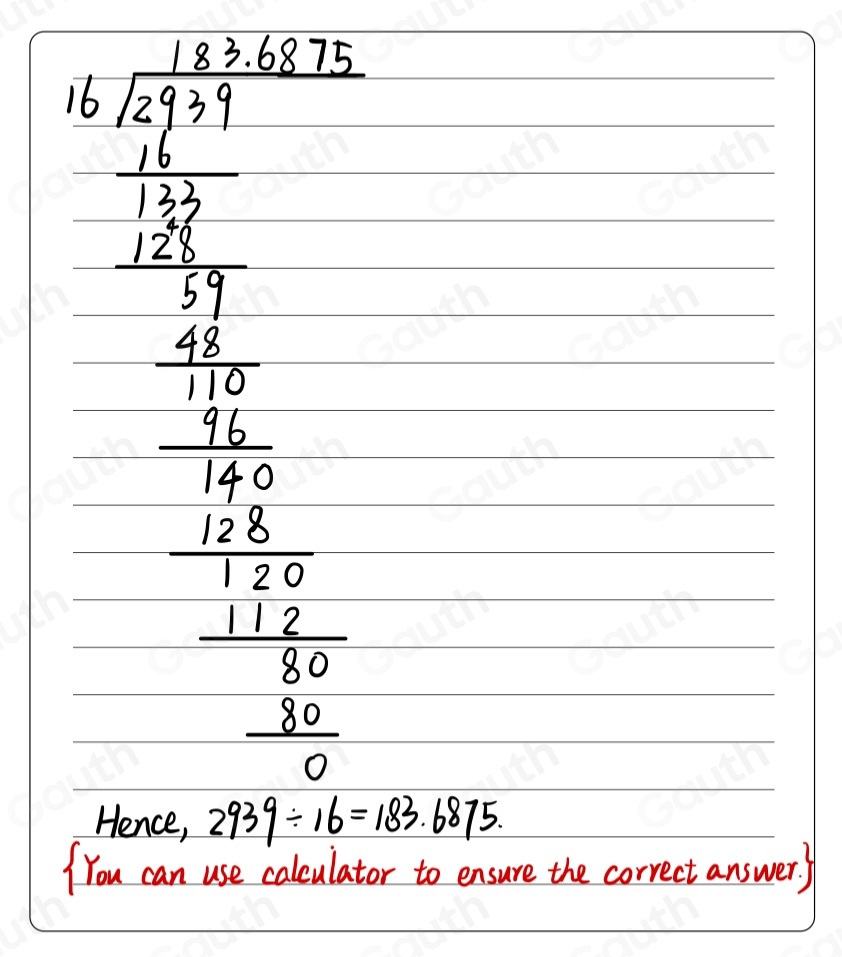 183.6875
16 √2939
16
133
4
128
59
48
110
96
140
128
120
112
80
80
0
Hence, 2939÷16=183.6875.
{You can use calculator to ensure the correct answer.}
Gauth